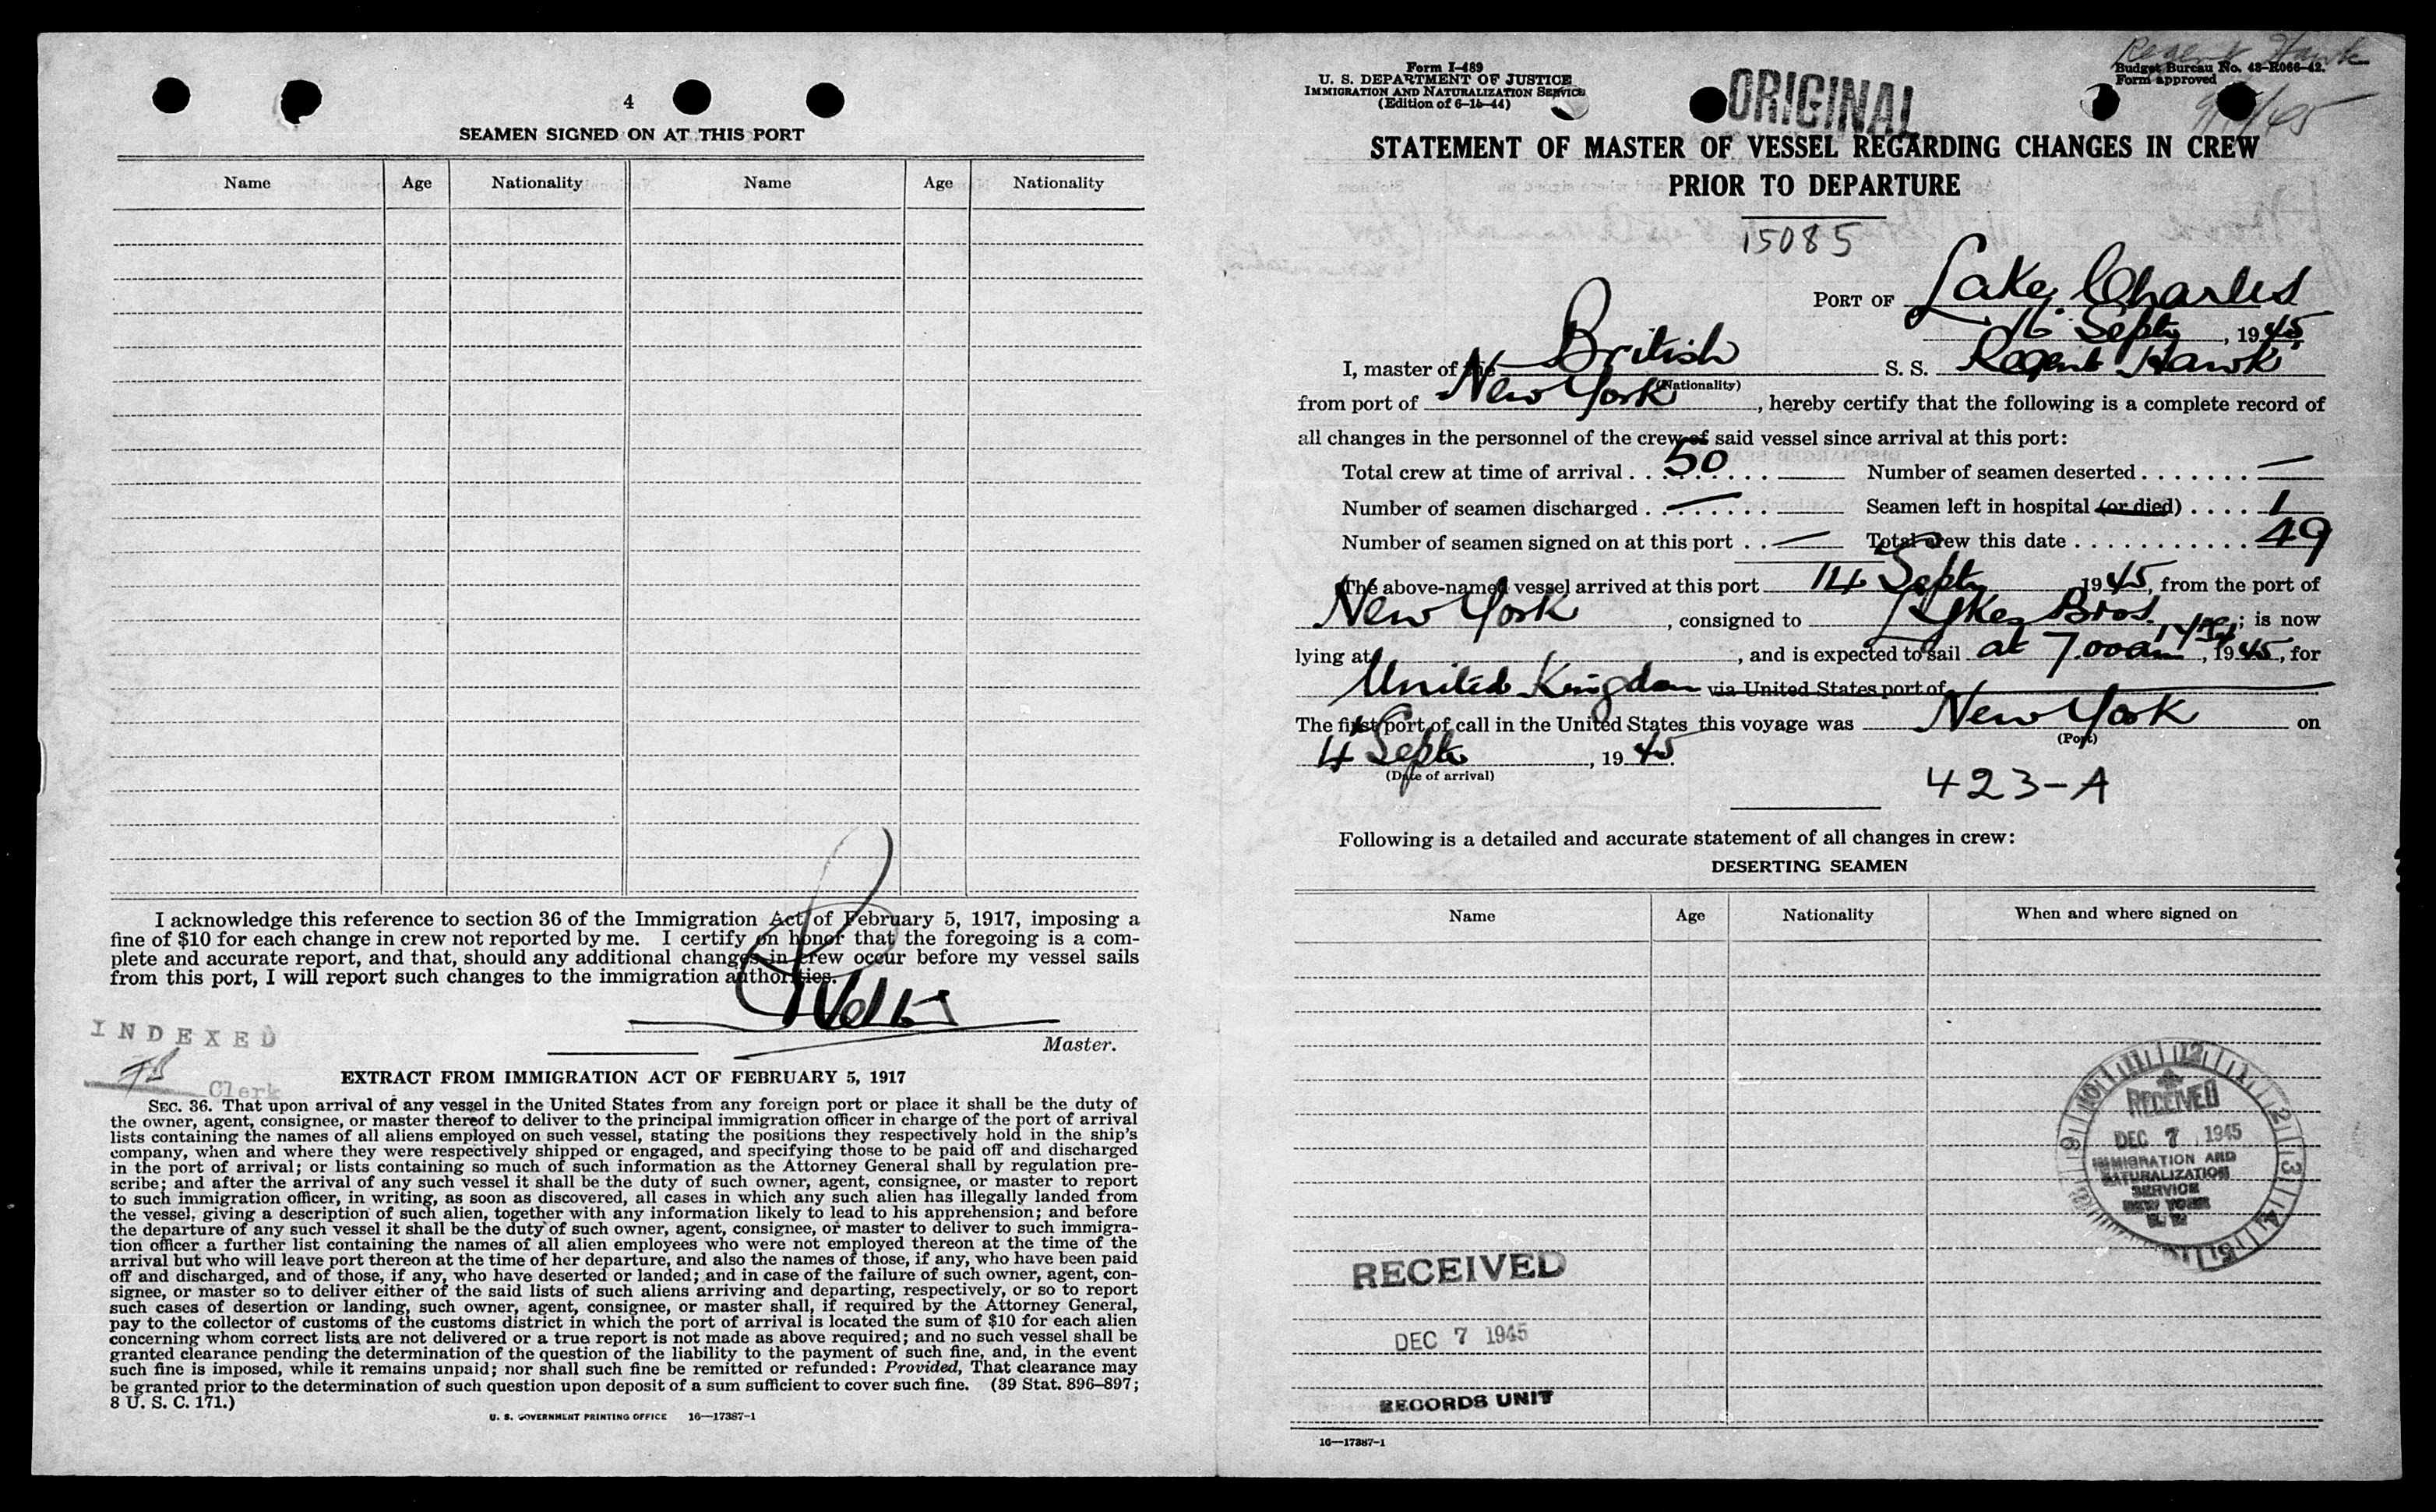 4
SEAMEN SIGNED ON AT THIS PORT
Name Age Nationality Name Age Nationality
I acknowledge this reference to section 36 of the Immigration Act of February 5, 1917, imposing a
fine of $10 for each change in crew not reported by me. I certify on honor that the foregoing is a com-
plete and accurate report, and that, should any additional changes in crew occur before my vessel sails
from this port, I will report such changes to the immigration authorities.
Master.
INDEXED
Clerk
EXTRACT FROM IMMIGRATION ACT OF FEBRUARY 5, 1917
SEC. 36. That upon arrival of any vessel in the United States from any foreign port or place it shall be the duty of
the owner, agent, consignee, or master thereof to deliver to the principal immigration officer in charge of the port of arrival
lists containing the names of all aliens employed on such vessel, stating the positions they respectively hold in the ship's
company, when and where they were respectively shipped or engaged, and specifying those to be paid off and discharged
in the port of arrival; or lists containing so much of such information as the Attorney General shall by regulation pre-
scribe; and after the arrival of any such vessel it shall be the duty of such owner, agent, consignee, or master to report
to such immigration officer, in writing, as soon as discovered, all cases in which any such alien has illegally landed from
the vessel, giving a description of such alien, together with any information likely to lead to his apprehension; and before
the departure of any such vessel it shall be the duty of such owner, agent, consignee, or master to deliver to such immigra-
tion officer a further list containing the names of all alien employees who were not employed thereon at the time of the
arrival but who will leave port thereon at the time of her departure, and also the names of those, if any, who have been paid
off and discharged, and of those, if any, who have deserted or landed; and in case of the failure of such owner, agent, con-
signee, or master so to deliver either of the said lists of such aliens arriving and departing, respectively, or so to report
such cases of desertion or landing, such owner, agent, consignee, or master shall, if required by the Attorney General,
pay to the collector of customs of the customs district in which the port of arrival is located the sum of $10 for each alien
concerning whom correct lists are not delivered or a true report is not made as above required; and no such vessel shall be
granted clearance pending the determination of the question of the liability to the payment of such fine, and, in the event
such fine is imposed, while it remains unpaid; nor shall such fine be remitted or refunded: Provided, That clearance may
be granted prior to the determination of such question upon deposit of a sum sufficient to cover such fine. (39 Stat. 896–897;
8 U. S. C. 171.)
U. S. GOVERNMENT PRINTING OFFICE 16—17387-1
Regent Hawk
Form I-489
U. S. DEPARTMENT OF JUSTICE
IMMIGRATION AND NATURALIZATION SERVICE
(Edition of 6-15-44)
ORIGINAL
Budget Bureau No. 43-R066-42.
Form approved
STATEMENT OF MASTER OF VESSEL REGARDING CHANGES IN CREW
PRIOR TO DEPARTURE
15085
PORT OF Lake Charles
16 Sept, 1945
I, master of the British S. S. Regent Hawk
(Nationality)
from port of New York, hereby certify that the following is a complete record of
all changes in the personnel of the crew of said vessel since arrival at this port:
Total crew at time of arrival 50 Number of seamen deserted —
Number of seamen discharged — Seamen left in hospital (or died) 1
Number of seamen signed on at this port — Total crew this date 49
The above-named vessel arrived at this port 14 Sept 1945, from the port of
New York, consigned to Lykes Bros.; is now
lying at, and is expected to sail at 7.00am, 1945, for
United Kingdom via United States port of
The first port of call in the United States this voyage was New York on
(Port)
4 Sept, 1945.
(Date of arrival)
423-A
Following is a detailed and accurate statement of all changes in crew:
DESERTING SEAMEN
Name Age Nationality When and where signed on
RECEIVED
DEC 7 1945
IMMIGRATION AND
NATURALIZATION
SERVICE
NEW YORK
N. Y.
RECEIVED
DEC 7 1945
RECORDS UNIT
16—17387-1